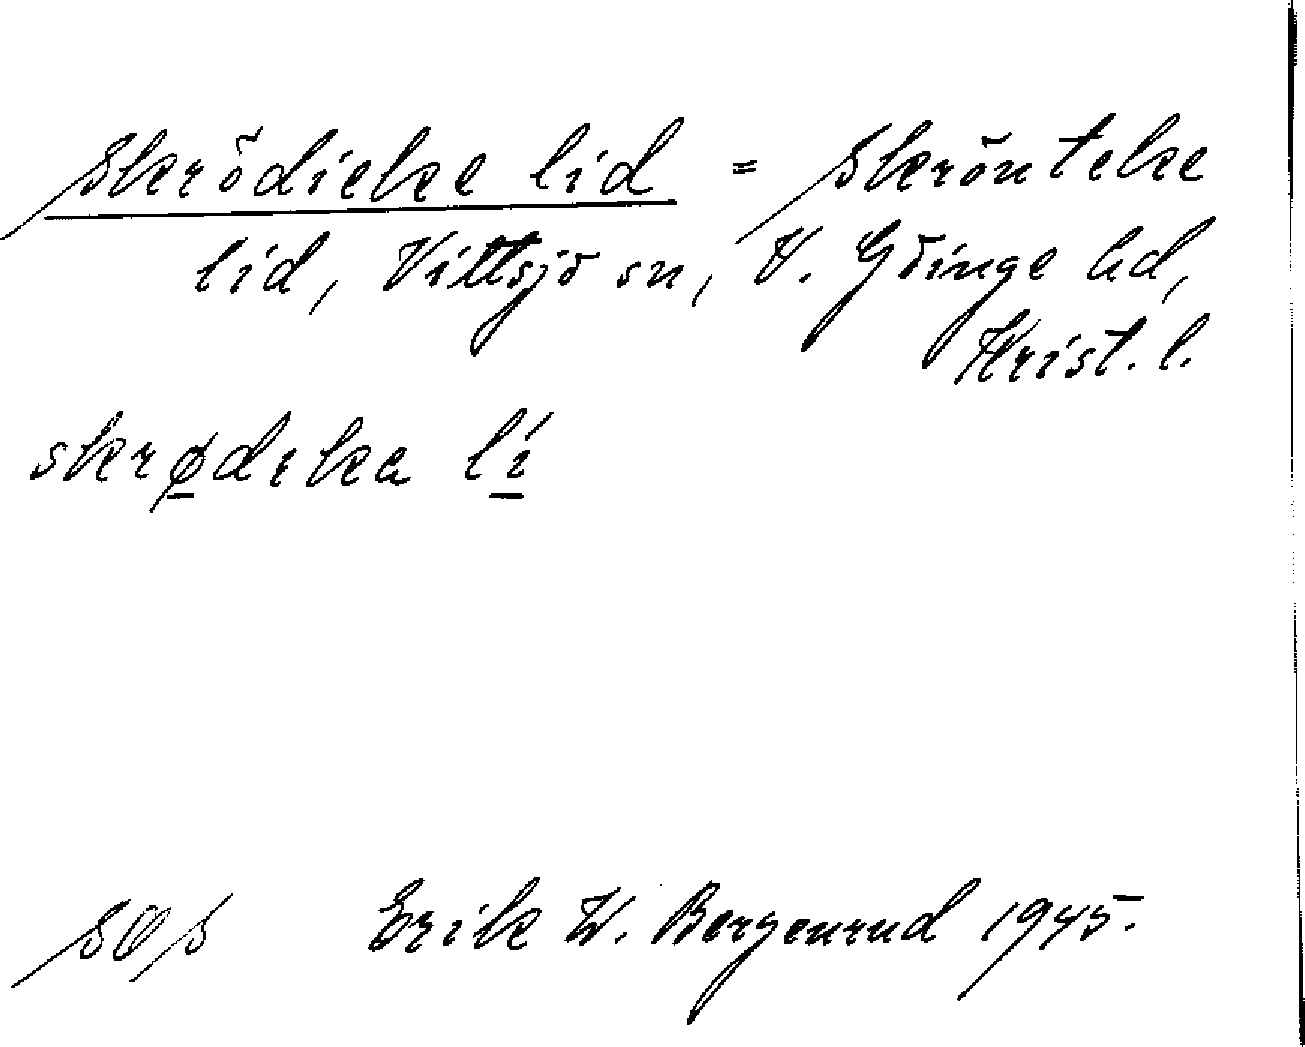 Skrödieke lid = Skrönteke
lid, Vittsjö sn, V. Göinge hd,
Krist. l.
skrødıka lí
SOS Erik W. Bergenrud 1945.